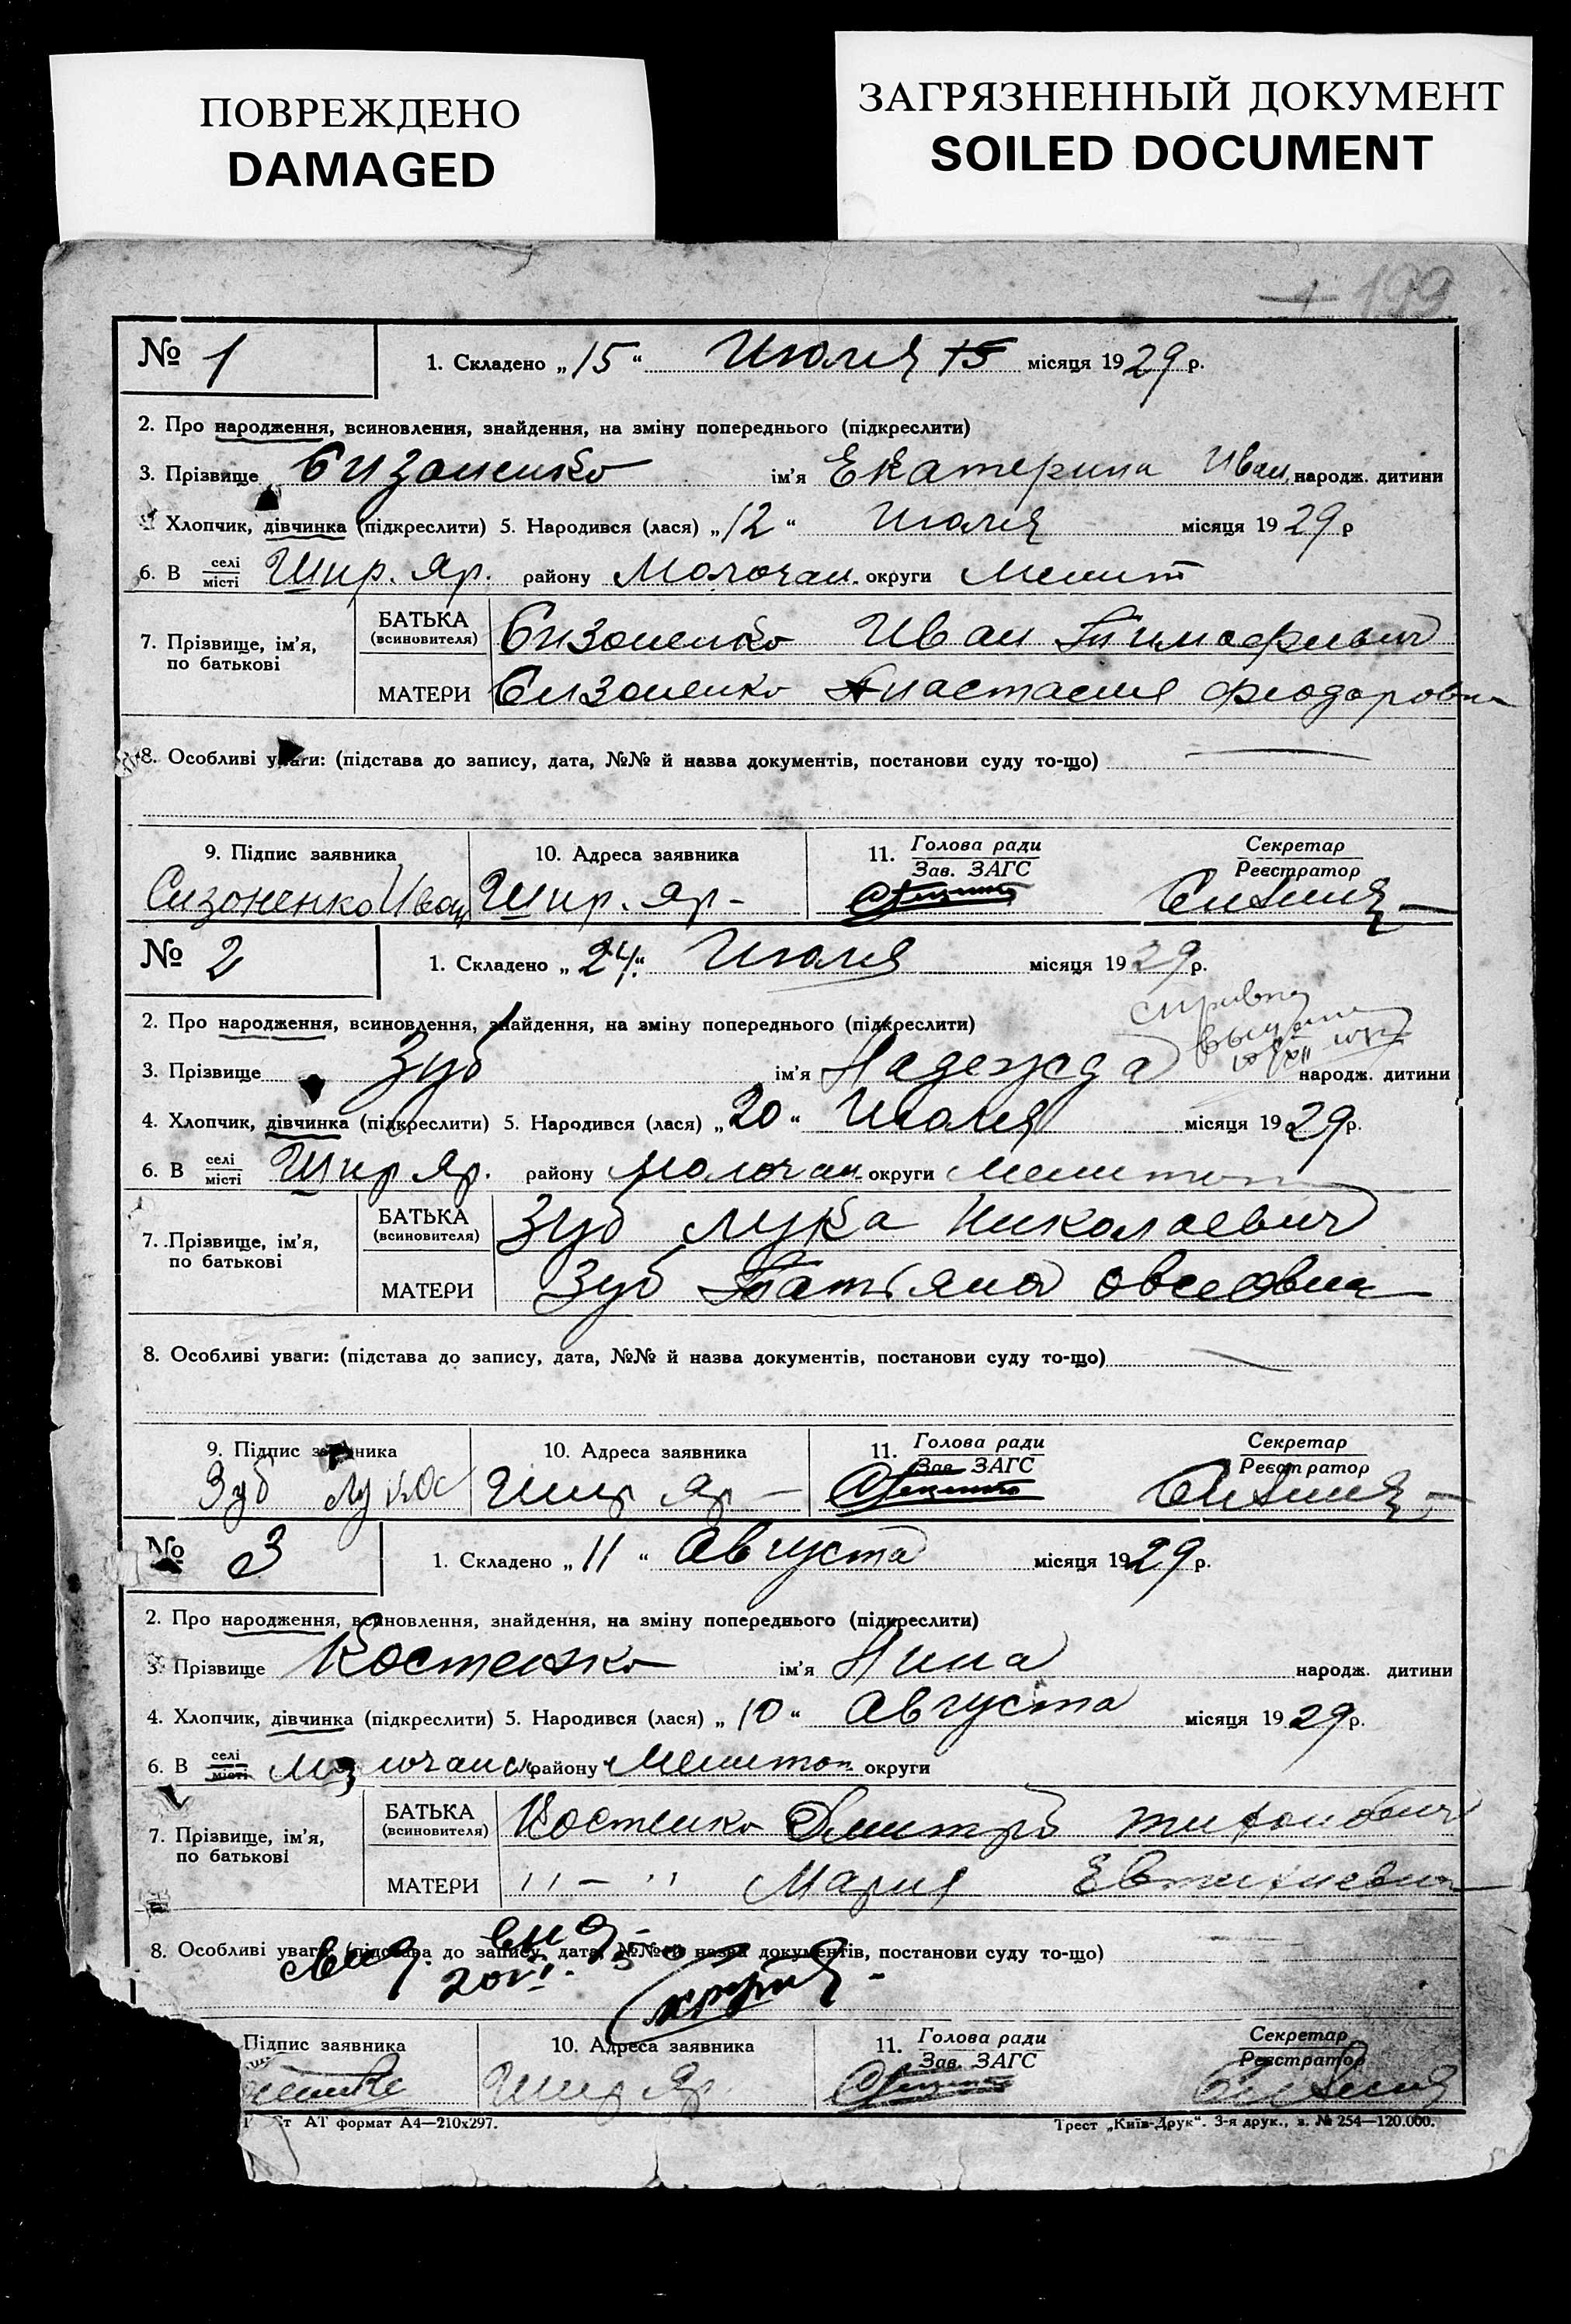 ПОВРЕЖДЕНО
DAMAGED
ЗАГРЯЗНЕННЫЙ ДОКУМЕНТ
SOILED DOCUMENT
199
№ 1
1. Складено „15“ Июля 15 місяця 1929 р.
2. Про народження, всиновлення, знайдення, на зміну попереднього (підкреслити)
3. Прізвище Сизоненко ім'я Екатерина Иван. народж. дитини
Хлопчик, дівчинка (підкреслити) 5. Народився (лася) „12“ Июля місяця 1929 р
6. В селі місті Шир. Яр. району Молочан. округи Мелит
7. Прізвище, ім'я, по батькові
БАТЬКА (всиновителя) Сизоненко Иван Тимофеевич
МАТЕРИ Сизоненко Анастасия Феодоровна
8. Особливі уваги: (підстава до запису, дата, №№ й назва документів, постанови суду то-що)
9. Підпис заявника 10. Адреса заявника 11. Голова ради Зав. ЗАГС Секретар Реєстратор
Сизоненко Иван Шир. Яр-
№ 2
1. Складено „24“ Июля місяця 1929 р.
2. Про народження, всиновлення, знайдення, на зміну попереднього (підкреслити)
3. Прізвище Зуб ім'я Надежда народж. дитини
4. Хлопчик, дівчинка (підкреслити) 5. Народився (лася) „20“ Июля місяця 1929 р.
6. В селі місті Шир Яр. району Молочан округи Мелитоп
7. Прізвище, ім'я, по батькові
БАТЬКА (всиновителя) Зуб Лука Николаевич
МАТЕРИ Зуб Татьяна Овсеовна
8. Особливі уваги: (підстава до запису, дата, №№ й назва документів, постанови суду то-що)
9. Підпис заявника 10. Адреса заявника 11. Голова ради Зав. ЗАГС Секретар Реєстратор
Зуб Лука Шир Яр-
№ 3
1. Складено „11“ Августа місяця 1929 р.
2. Про народження, всиновлення, знайдення, на зміну попереднього (підкреслити)
3. Прізвище Костенко ім'я Нина народж. дитини
4. Хлопчик, дівчинка (підкреслити) 5. Народився (лася) „10“ Августа місяця 1929 р.
6. В селі місті Молочанск району Мелитоп. округи
7. Прізвище, ім'я, по батькові
БАТЬКА (всиновителя) Костенко Дмитрий Тихонович
МАТЕРИ "-" Мария Евтихиевна
8. Особливі уваги: (підстава до запису, дата, №№ й назва документів, постанови суду то-що)
Підпис заявника 10. Адреса заявника 11. Голова ради Зав. ЗАГС Секретар Реєстратор
Шир Яр
АТ формат А4—210х297.
Трест „Київ-Друк“. 3-я друк., з. № 254—120.000.